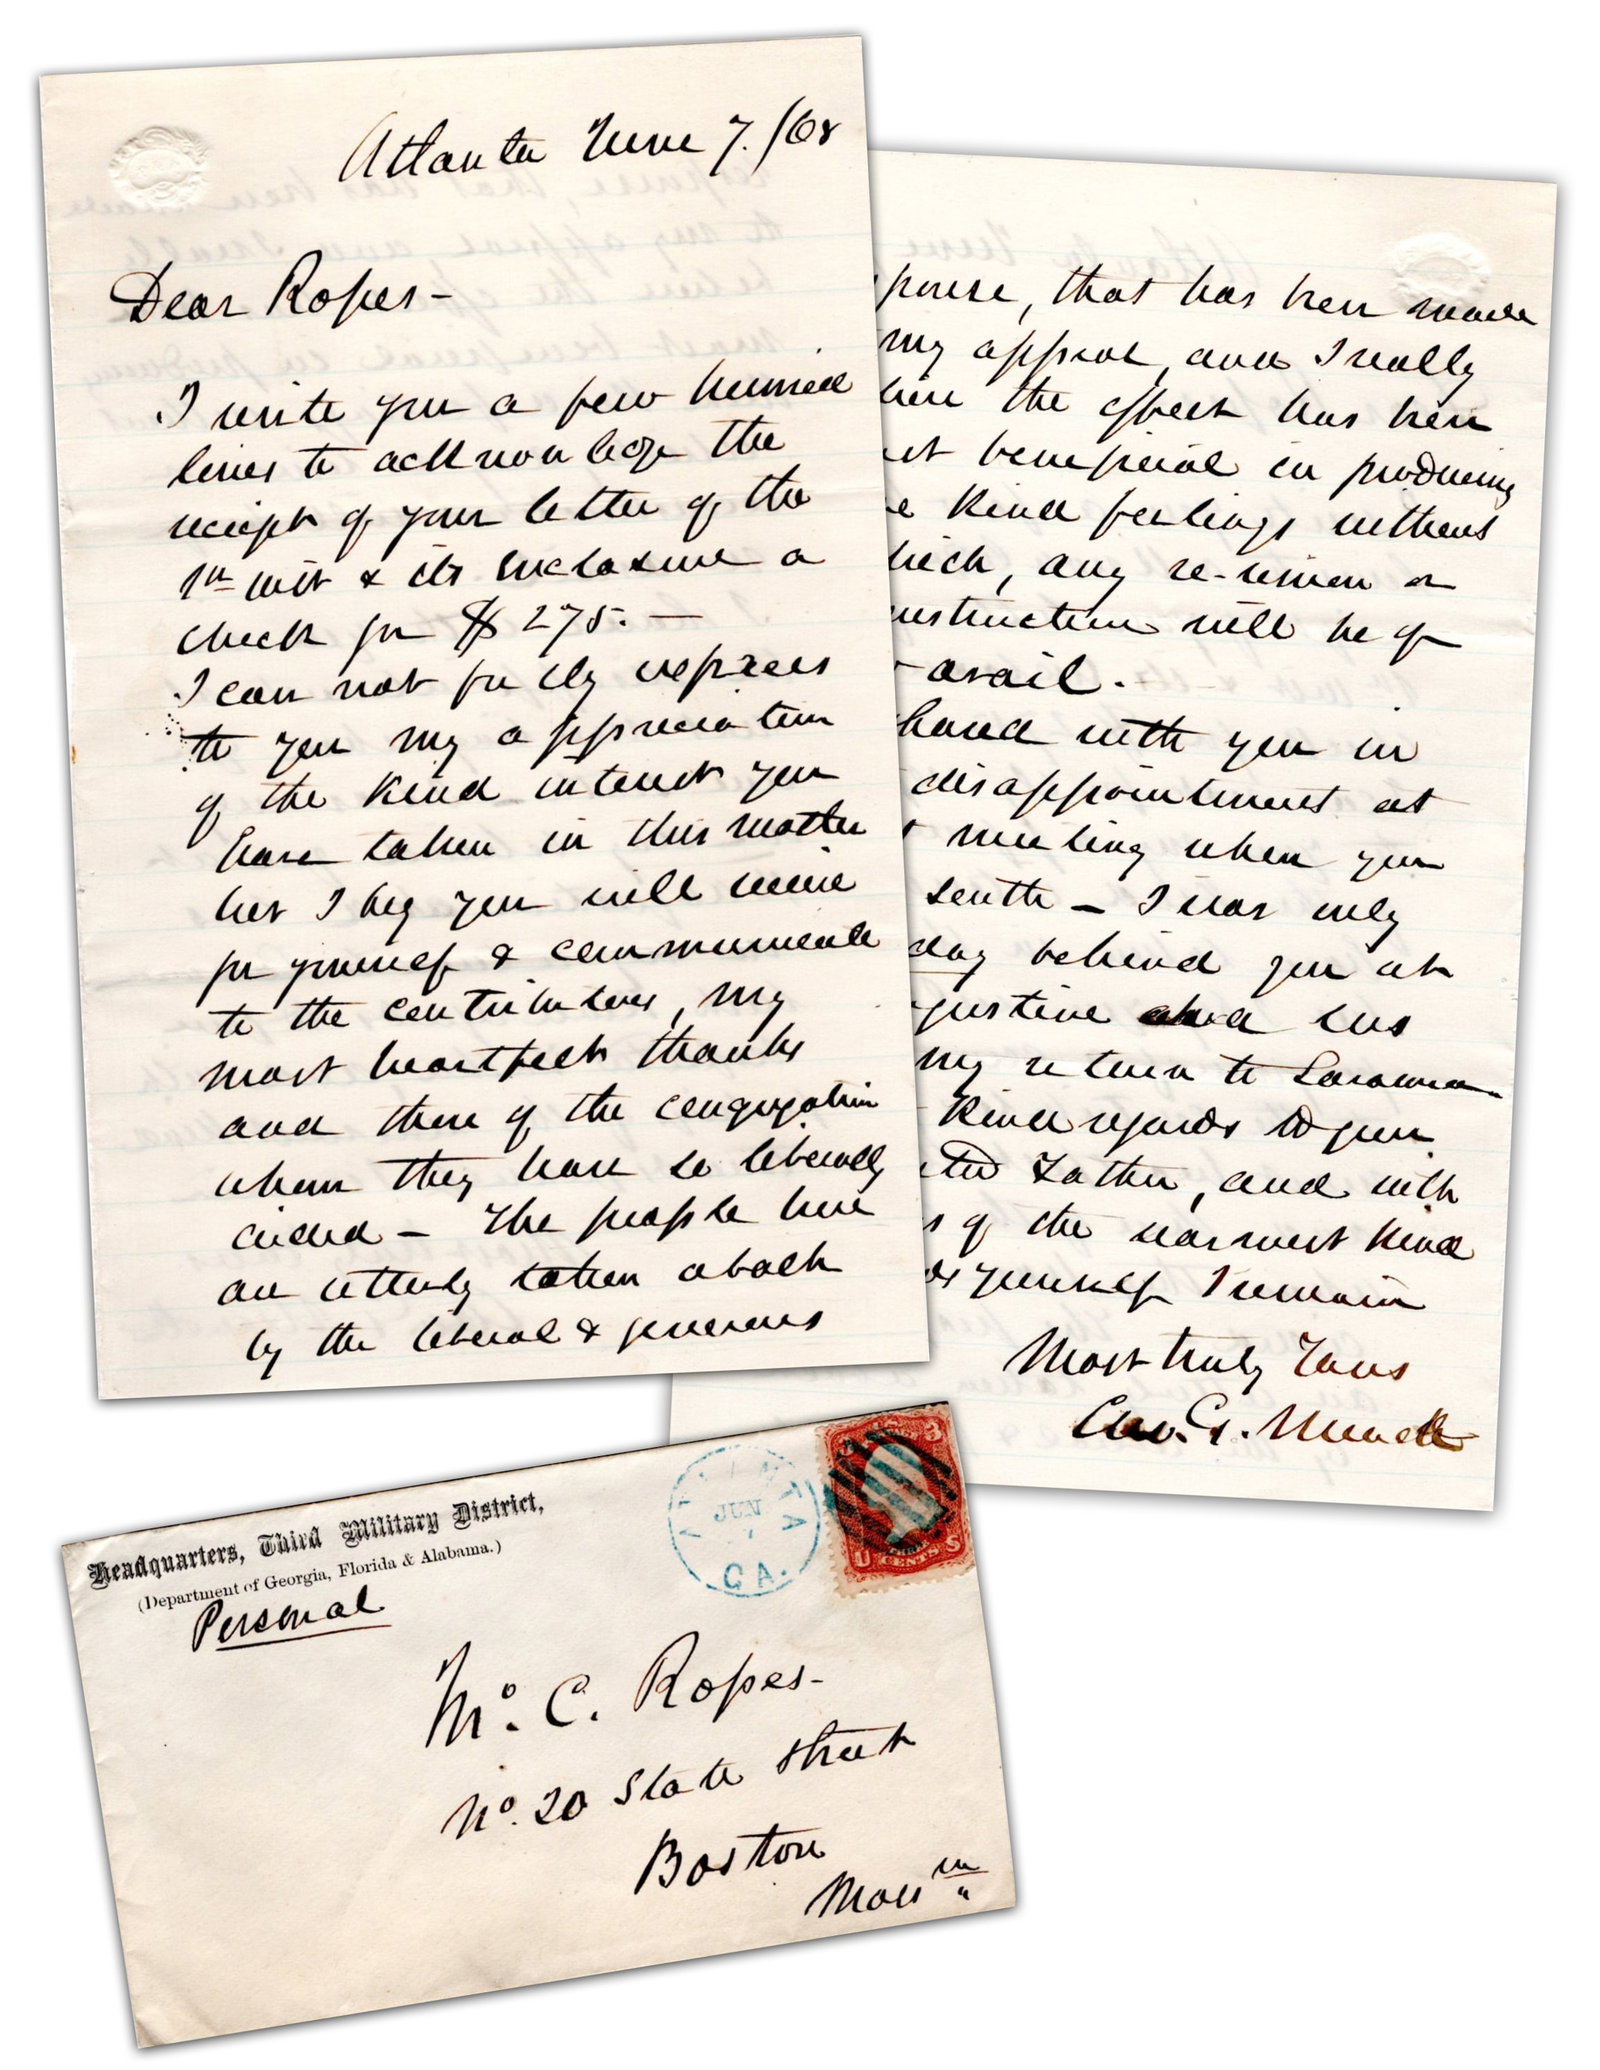 Atlanta June 7./68
Dear Ropes-
I write you a few hurried
lines to acknowledge the
receipt of your letter of the
1st inst & its enclosure a
check for $275. —
I can not fully express
to you my appreciation
of the kind interest you
have taken in this matter
but I beg you will receive
for yourself & communicate
to the contributors, my
most heartfelt thanks
and those of the congregation
whom they have so liberally
aided — The people here
are utterly taken aback
by the liberal & generous
ponse, that has been made
my appeal, and I really
the effect has been
beneficial in producing
kind feelings without
hich, any re-union or
nstruction will be of
avail.
hared with you in
disappointment at
meeting when you
South — I was only
day behind you at
gustine and
my return to Savanna
kind regards to your
Father, and with
s of the warmest kind
yourself I remain
Most truly Yours
Geo. G. Meade
Headquarters, Third Military District,
(Department of Georgia, Florida & Alabama.)
Personal
ATLANTA
JUN
GA.
3
U S
CENTS
C. Ropes-
No. 20 State Street
Boston
Mass